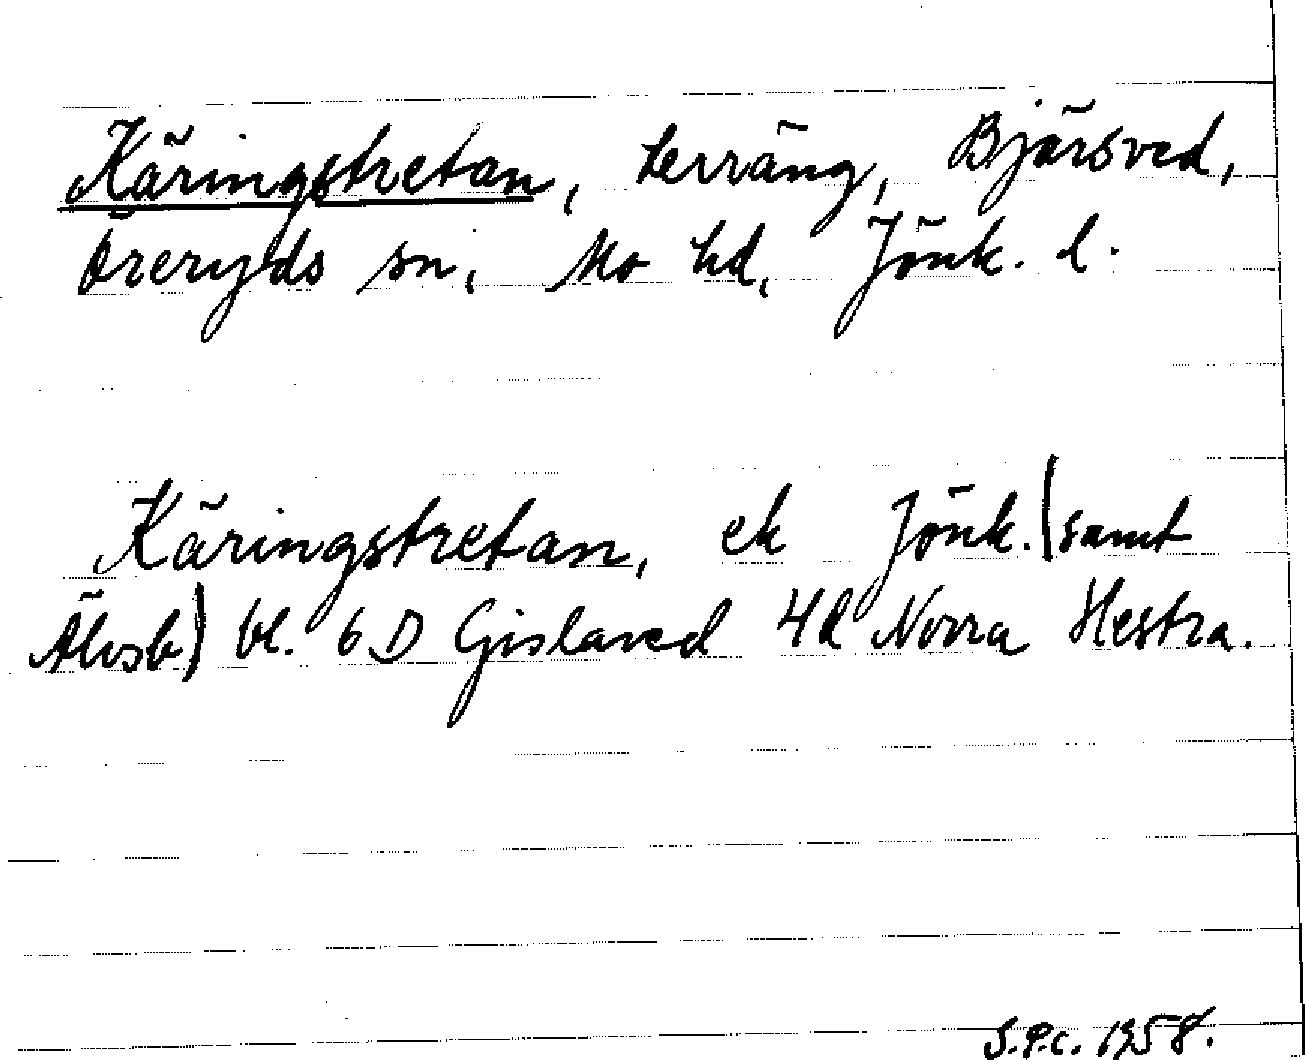 Käringstretan, terräng, Bjärsved,
Öreryds sn, Mo hd, Jönk. l.
Käringstretan, ek Jönk. (samt
Älvsb) bl. 6D Gislaved 4d Norra Hestra.
S.P.C. 1958.